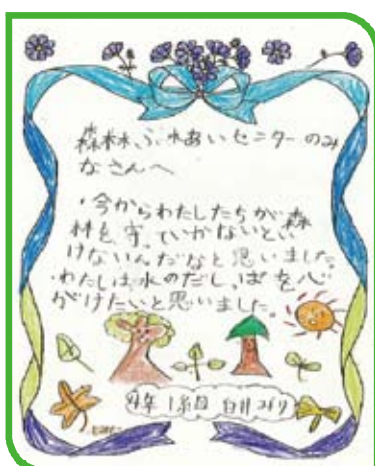 森林ふれあいセンターのみ
なさんへ
・今からわたしたちが森
林を守っていかないとい
けないんだなと思いました。
・わたしは水のだしっぱを心
がけたいと思いました。
4年 1組